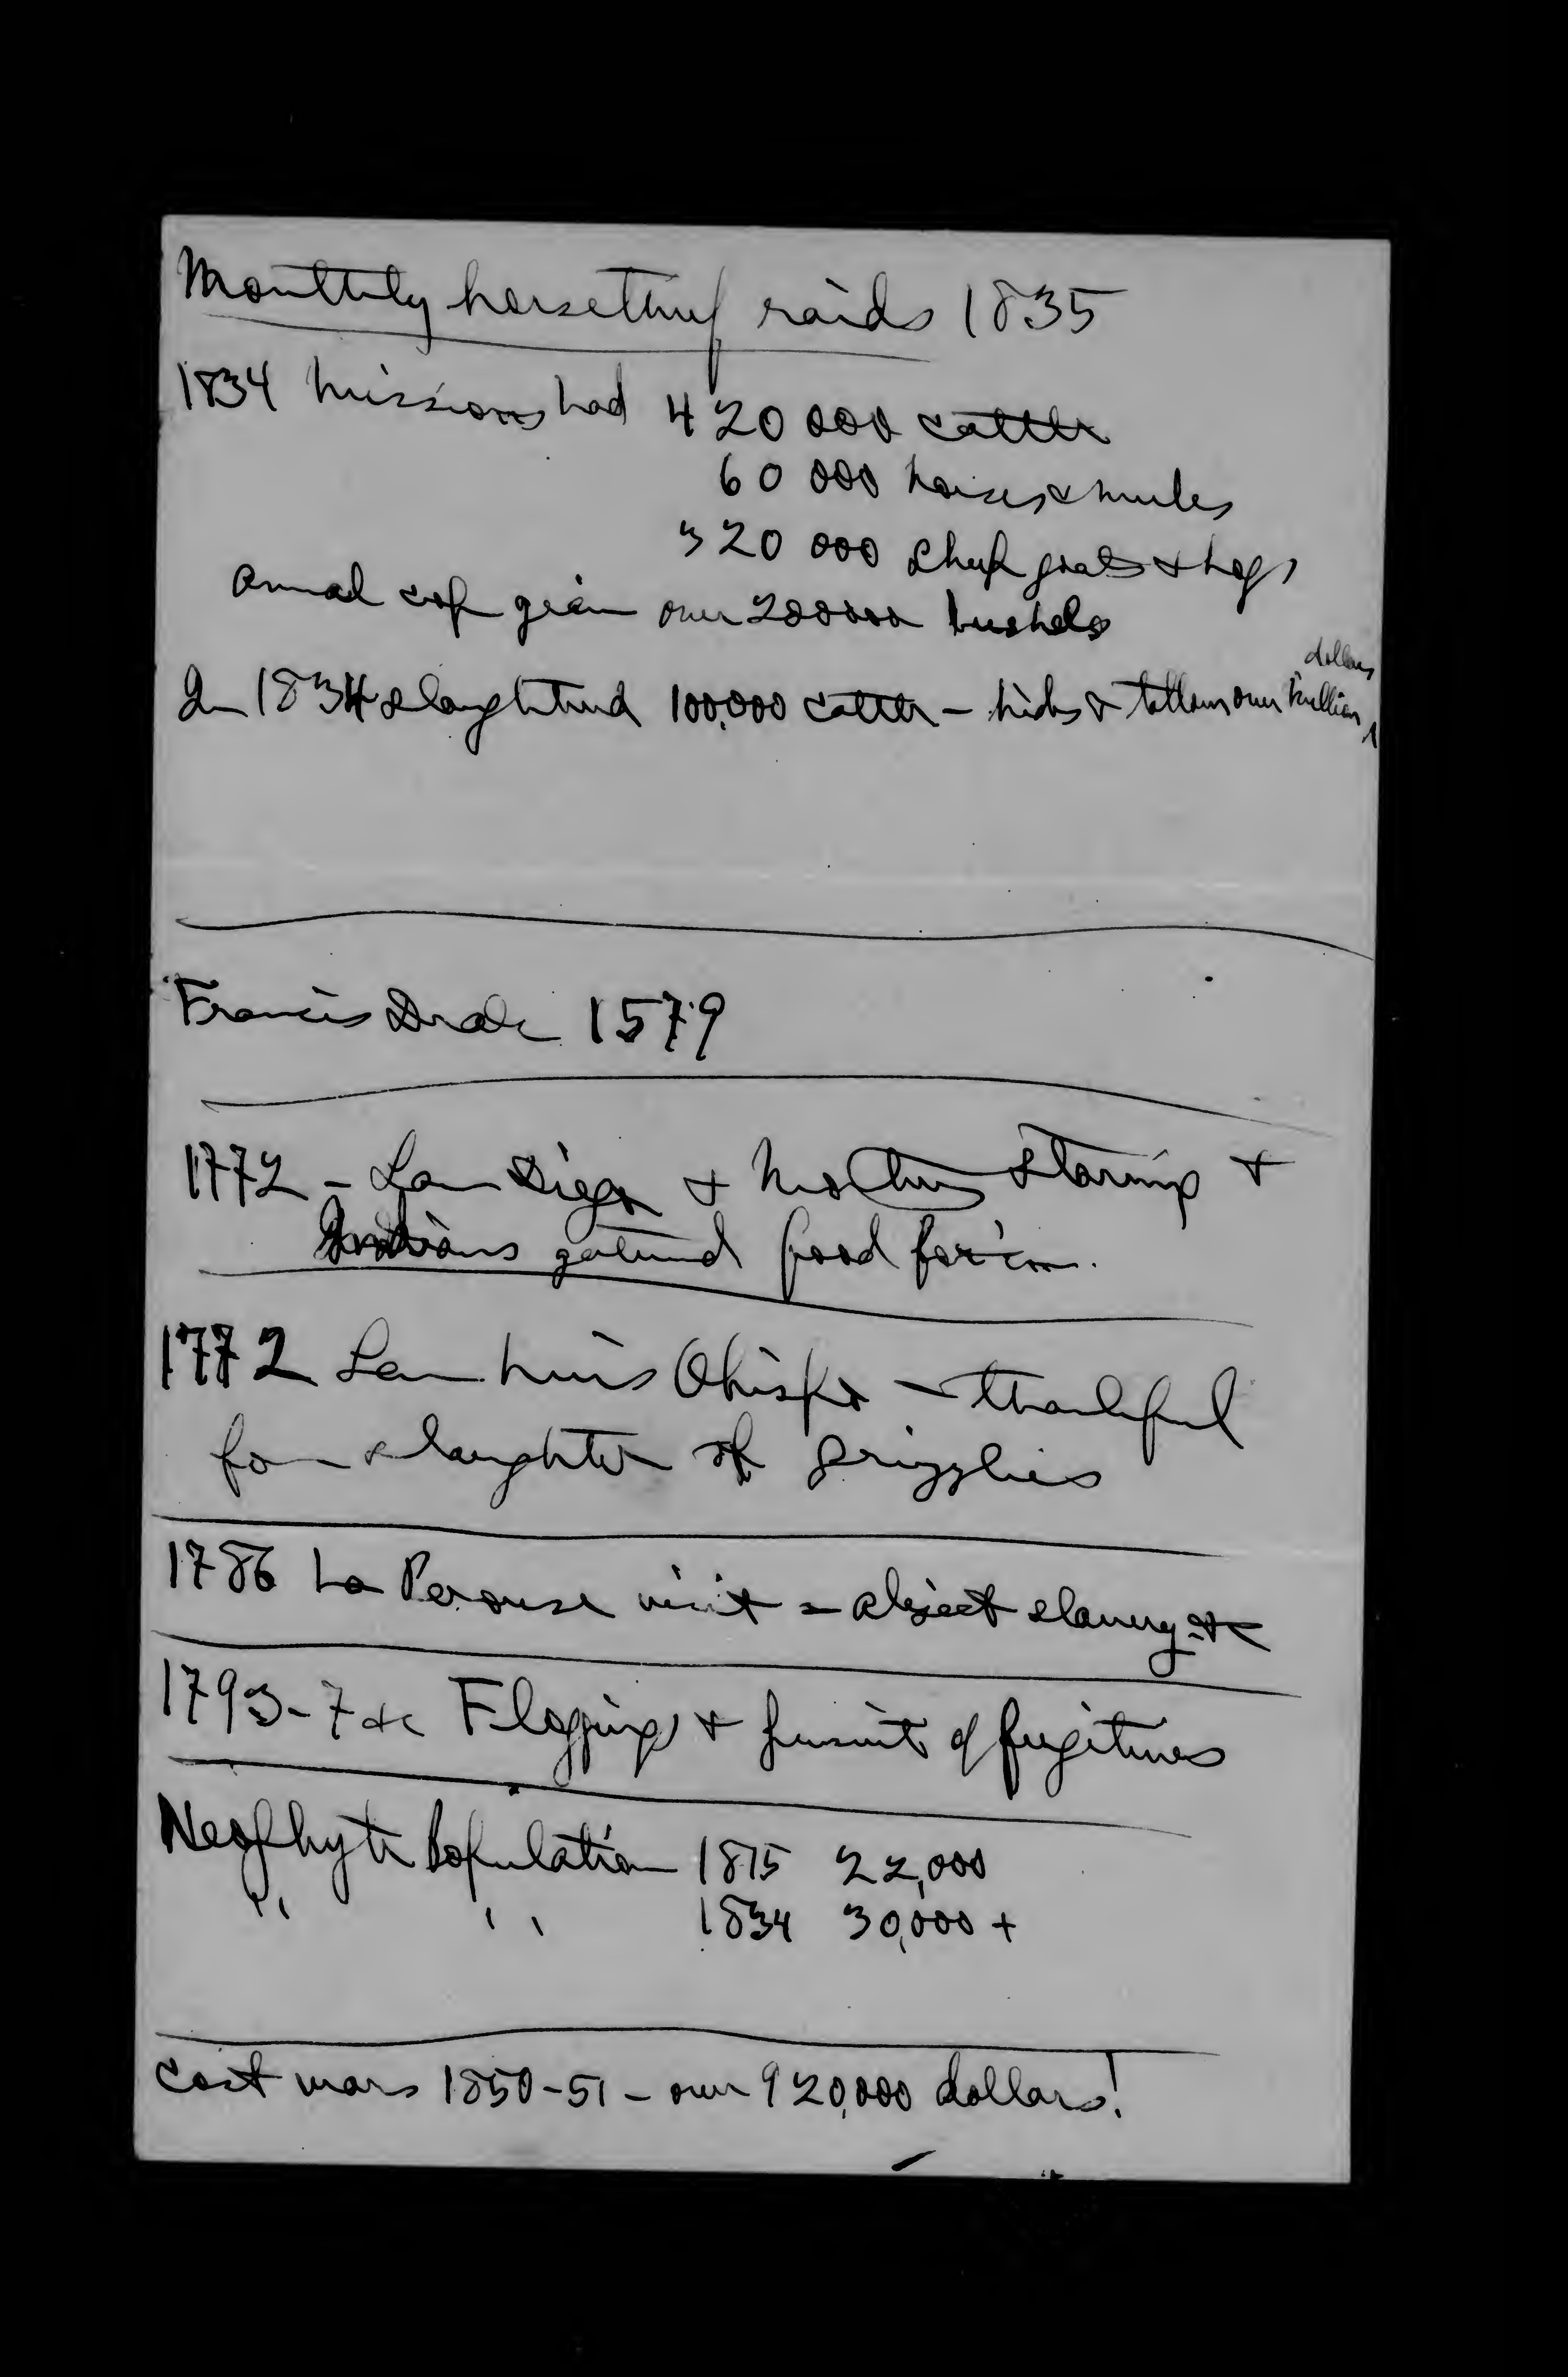 Monthly horsethief raids 1835
1834 missions had 420 000 cattle
60 000 horses & mules
320 000 sheep goats & hogs
annual crop grain over 200000 bushels
In 1834 slaughtered 100,000 cattle – hides & tallow over million dollars
Francis Drake 1579
1772 – San Diego & Monterey starving &
Indians gathered food for 'em.
1772 San Luis Obispo – thankful
for slaughter of grizzlies
1786 La Perouse visit = abject slavery etc
1793-7 etc Floggings & pursuit of fugitives
Neophyte Population 1815 22,000
" " 1834 30,000 +
Cost wars 1850-51 – over 920,000 dollars!